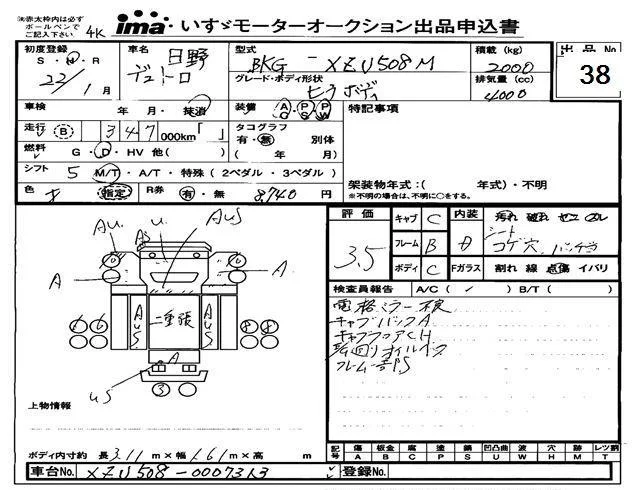 ※赤太枠内は必ず
ボールペンで
ご記入下さい
4K
ima いすゞモーターオークション出品申込書
初度登録
S・H・R
22/1月
車名 日野
デュトロ
型式
BKG - XZU508M
グレード・ボディ形状
ヒラボディ
積載 (kg)
2000
排気量 (cc)
4000
出品 No
38
車検 年・月・抹消
装備 AC・PS・PW
特記事項
走行 B 347 000km「 」
タコグラフ
有・無 別体
( 年 月)
燃料 G・D・HV 他( )
シフト 5 M/T・A/T・特殊 (2ペダル・3ペダル)
架装物年式:( 年式)・不明
※不明の場合は、不明に○をする。
色 指定 R券 有・無 8,740 円
評価 3.5
キャブ C
フレーム B
ボディ C
内装 D
汚れ 破れ
シート
コゲ穴
Fガラス 割れ 線 点傷 イバリ
検査員報告 A/C( ✓ ) B/T( )
電格ミラー
キャブバックA
キャブフロアCH
フレームS
Au
As
u
Aus
A
A
AuS
二重張
AuS
A
us
③
上物情報
ボディ内寸約 長 3.11 m×幅 1.61 m×高 m
記号 傷 板金 腐 塗 錆 凹凸曲 波 穴 跡 レツ割
A B C P S U W H M T
車台No. XZU508-0007313
登録No.